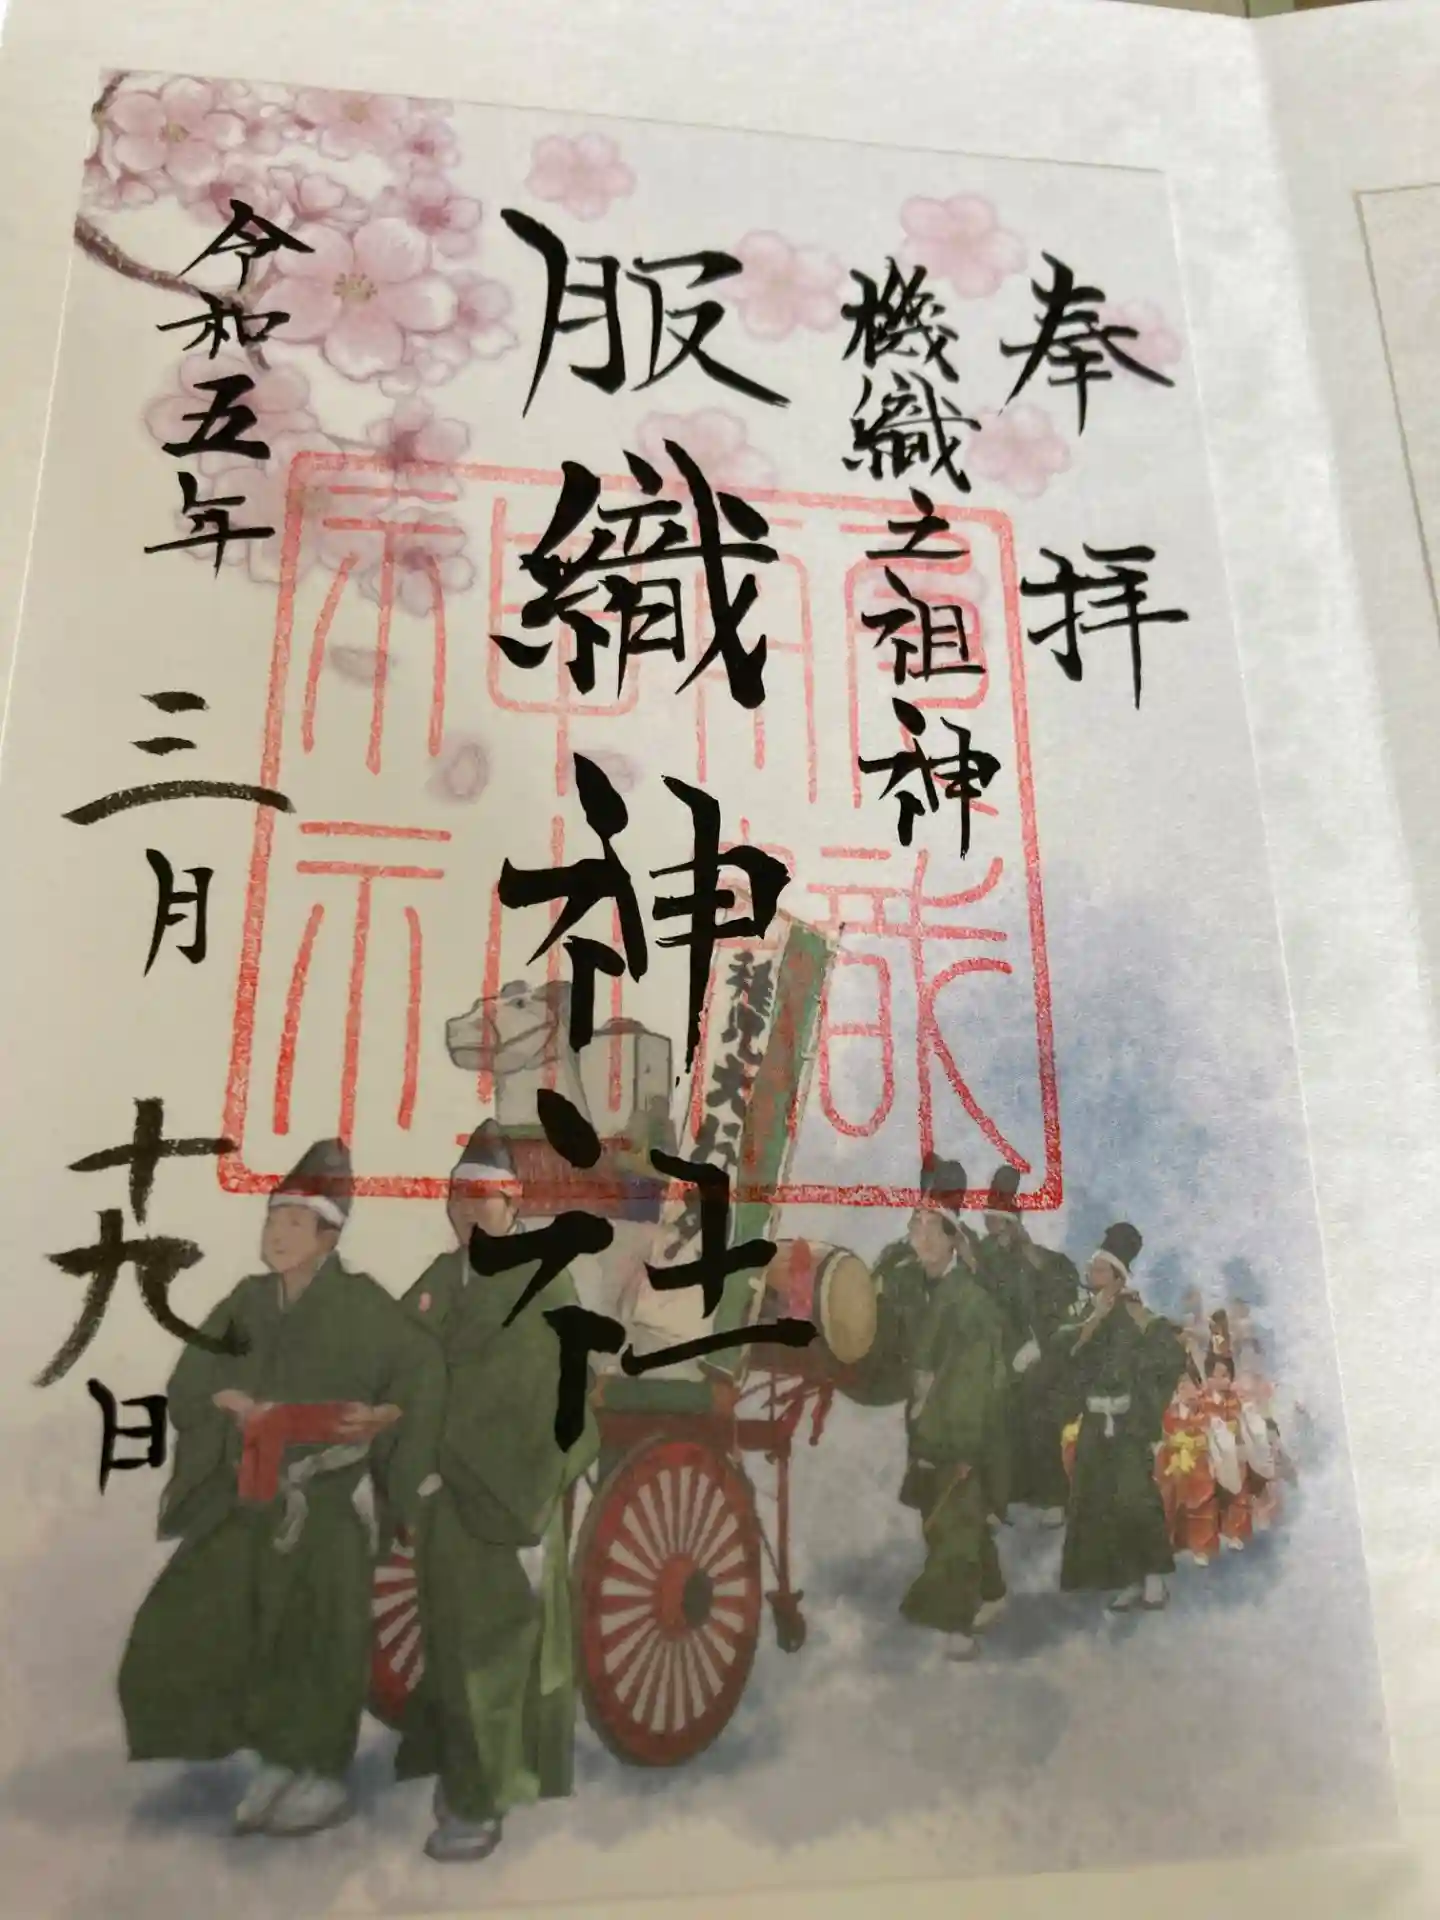 奉拝
機織之祖神
服織神社
令和五年三月十九日